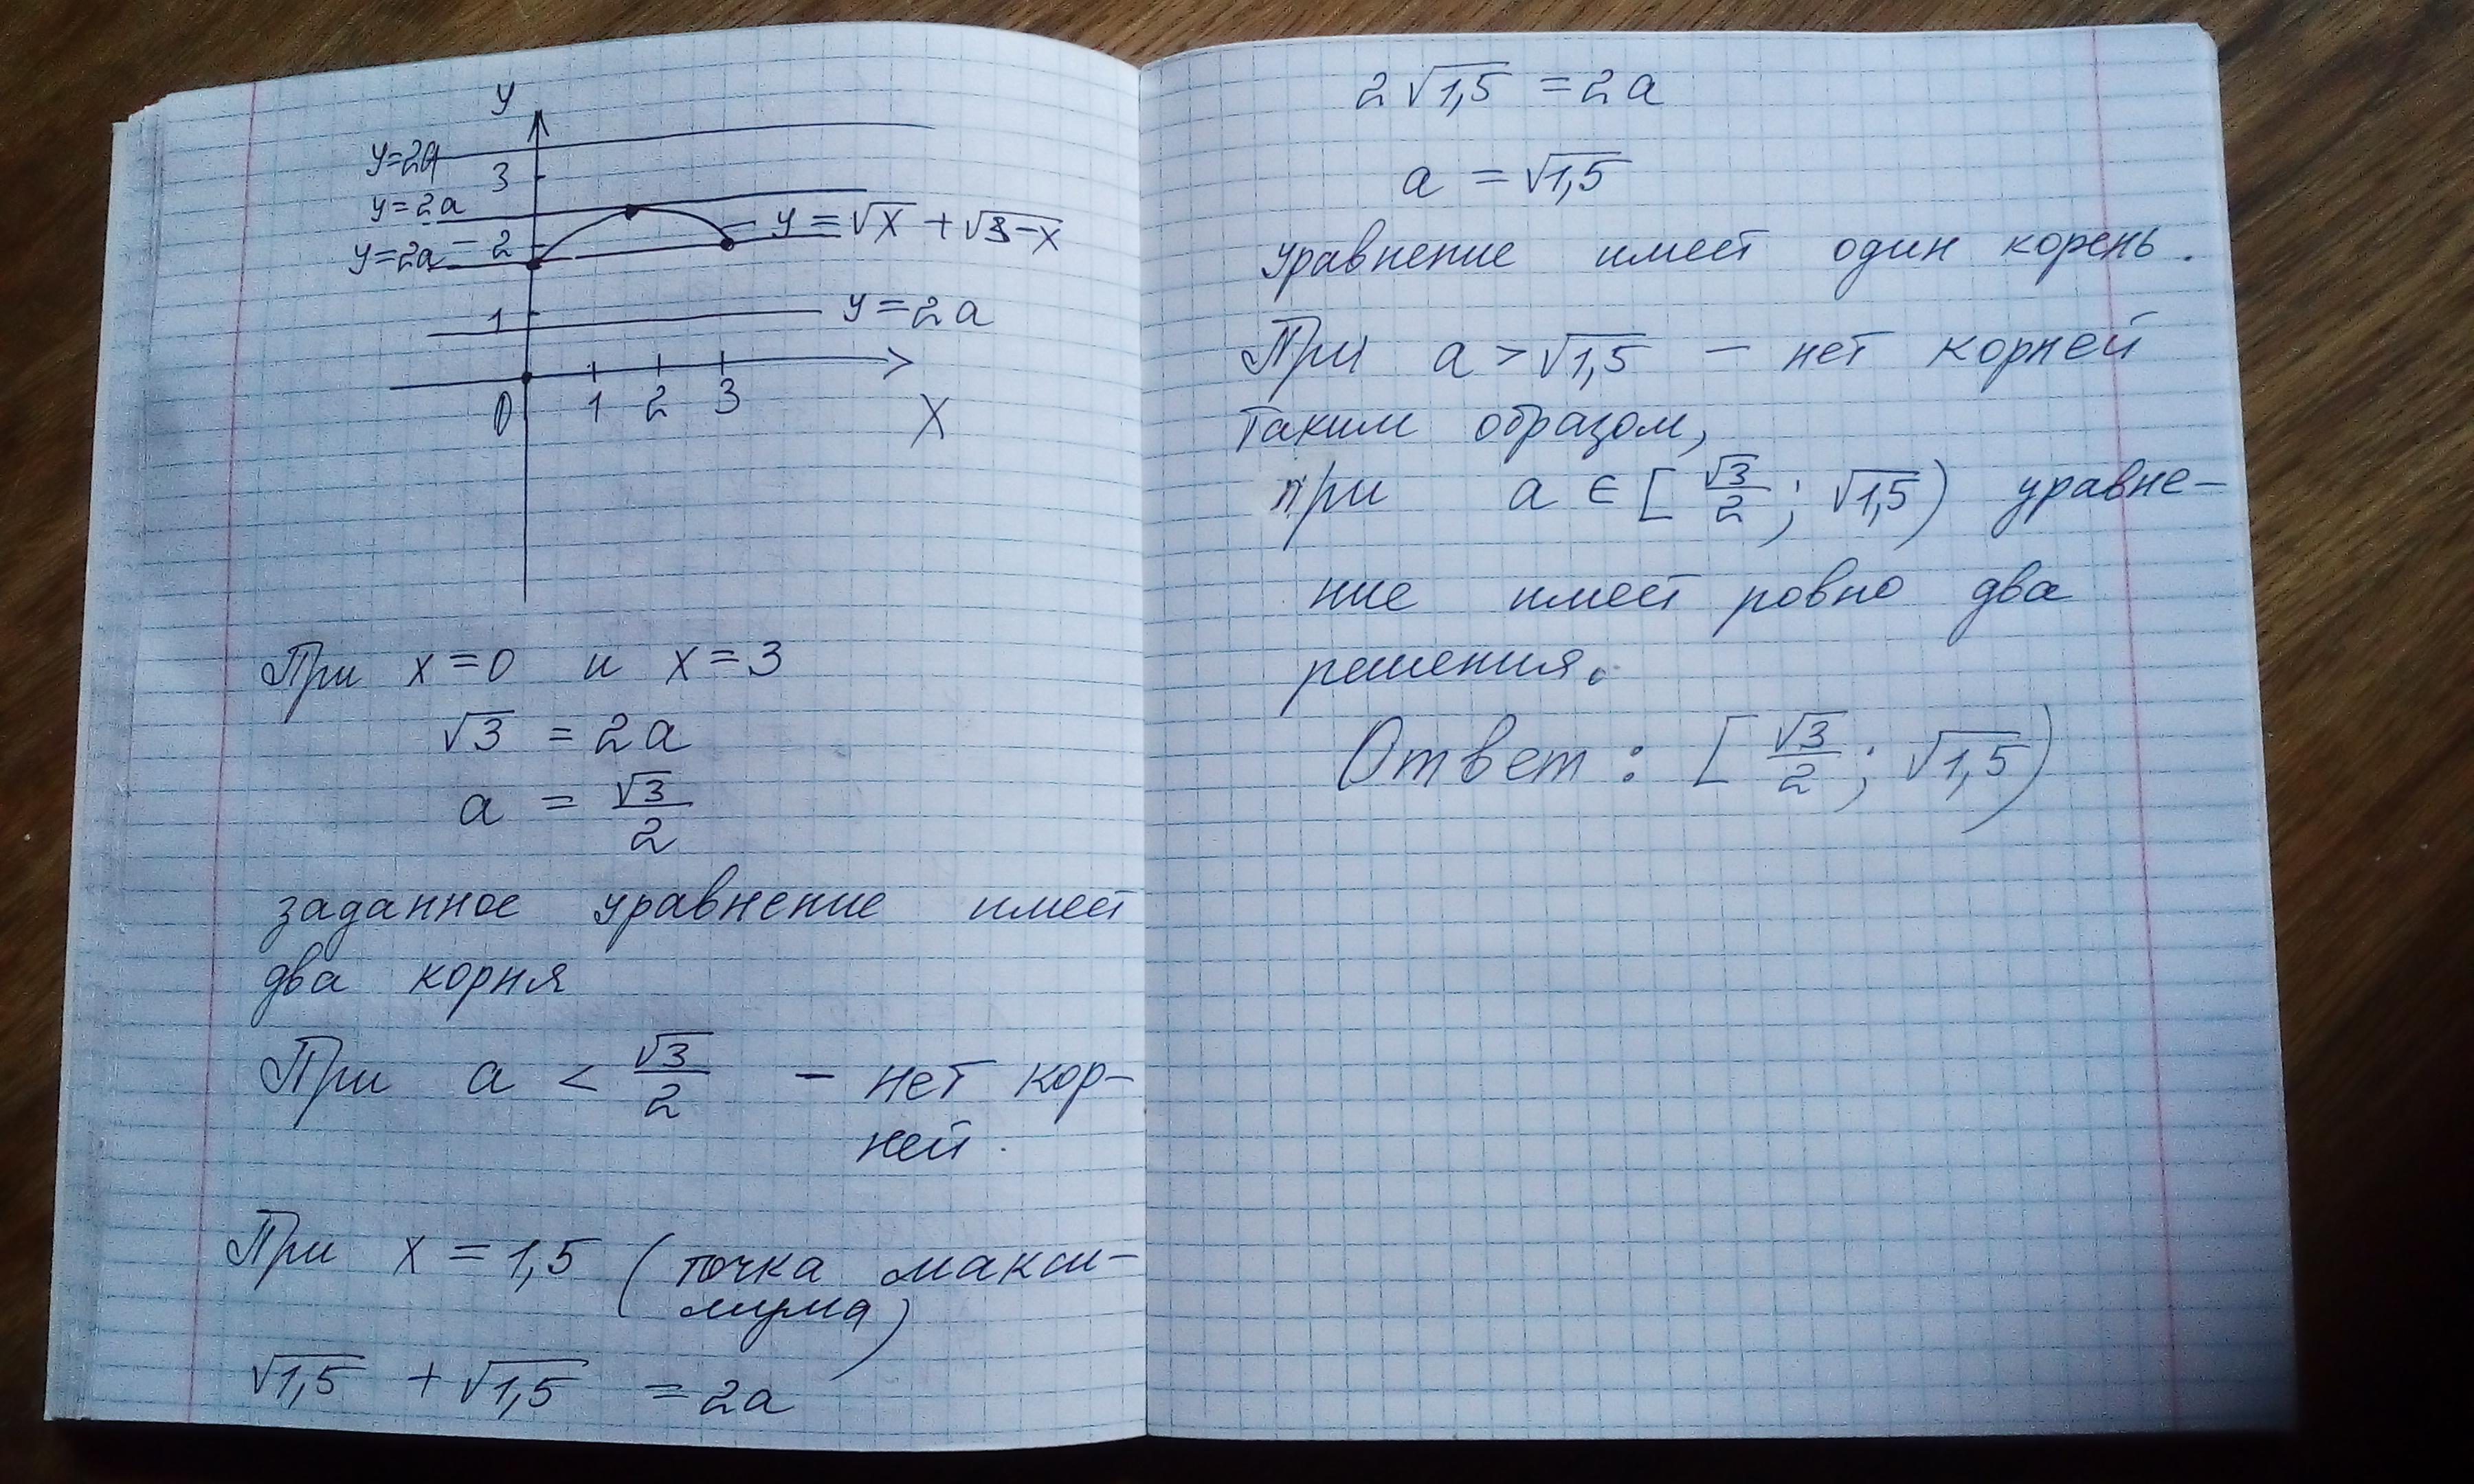 y
y=2a
3
y=2a
2
y=√x + √3-x
y=2a
1
y=2a
0 1 2 3
X
При x=0 и x=3
√3 = 2a
a = √3/2
заданное уравнение имеет
два корня
При a < √3/2 – нет кор-
ней.
При x = 1,5 (точка макси-
мума)
√1,5 + √1,5 = 2a
2√1,5 = 2a
a = √1,5
уравнение имеет один корень.
При a > √1,5 – нет корней
Таким образом,
при a ∈ [√3/2; √1,5) уравне-
ние имеет ровно два
решения.
Ответ: [√3/2; √1,5)